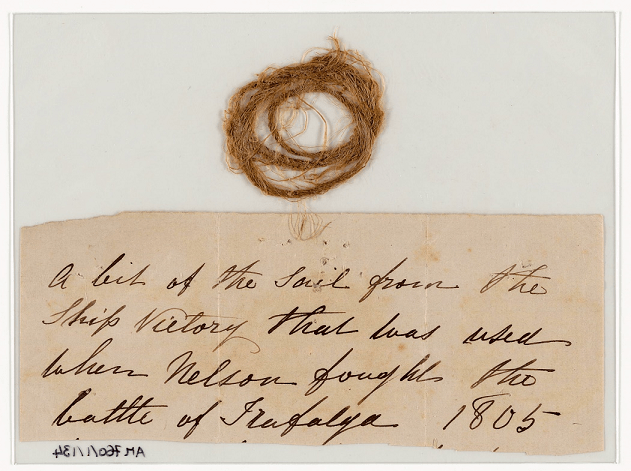 A bit of the Sail from the
Ship Victory that was used
when Nelson fought the
battle of Trafalga 1805
AM 760/1/134